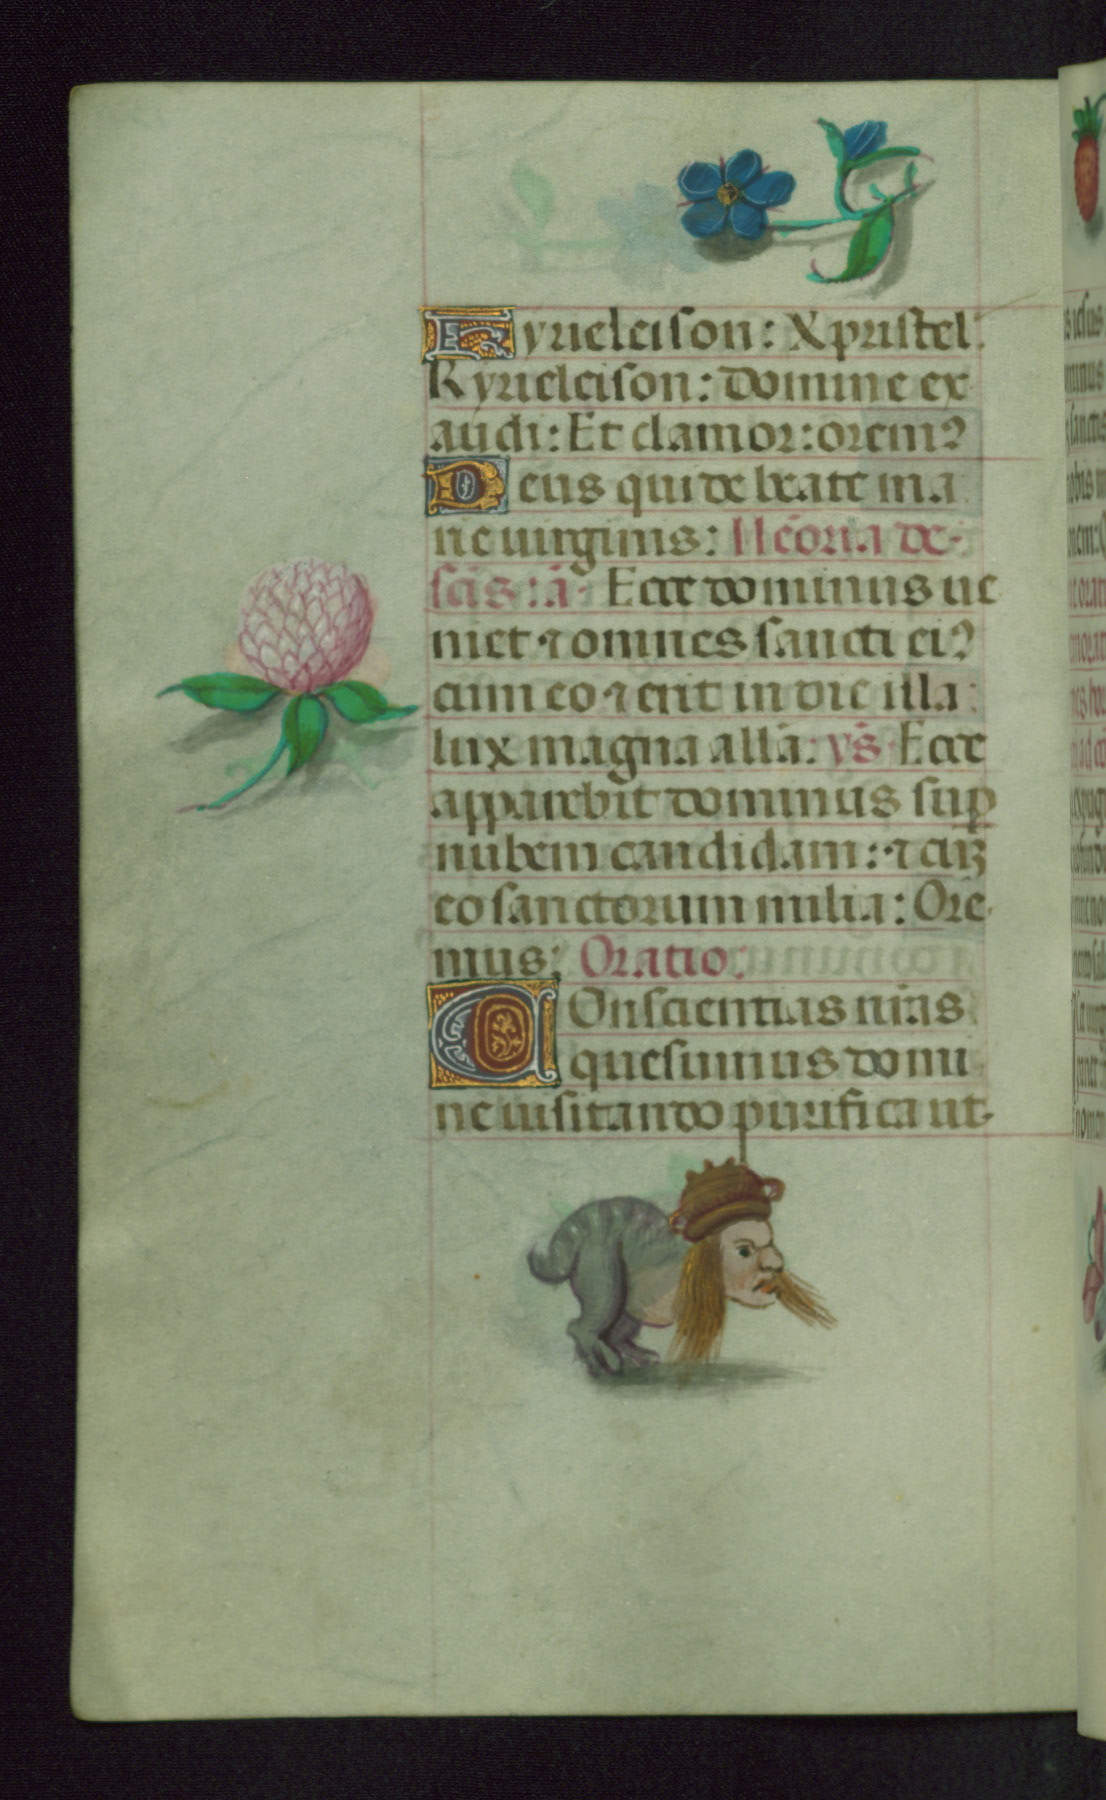 Kyrieleison: Xpristel.
Kyrieleison: Domine ex
audi: Et clamor: orem9
Deus qui de beate ma
rie uirginis: Meoria de
scis: a. Ecce dominus ue
niet ⁊ omnes sancti ei9
cum eo ⁊ erit in die illa
lux magna allã: vs̃ Ecce
apparebit dominus sup
nubem candidam: ⁊ cuʒ
eo sanctorum milia: Ore
mus: Oratio:
COnscientias nr̃as
quesumus domi
ne uisitando purifica ut